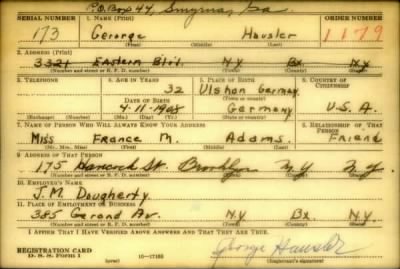 P.O. Box 44, Smyrna, Ga.
SERIAL NUMBER 1. Name (Print) ORDER NUMBER
173 Gerorge Hausler 1179
(First) (Middle) (Last)
2. Address (Print)
3321 Eastern Blvd. N.Y. Bx. N.Y.
(Number and street or R. F. D. number) (Town) (County) (State)
3. Telephone 4. Age in Years 5. Place of Birth 6. Country of Citizenship
32 Ulshon Germany
Date of Birth (Town or county)
4-11-1908 Germany U.S.A.
(Exchange) (Number) (Mo.) (Day) (Yr.) (State or country)
7. Name of Person Who Will Always Know Your Address 8. Relationship of That Person
Miss France M. Adams. Friend
(Mr., Mrs., Miss) (First) (Middle) (Last)
9. Address of That Person
175 Hancock St. Brooklyn N.Y. N.Y.
(Number and street or R. F. D. number) (Town) (County) (State)
10. Employer's Name
J.M. Dougherty
11. Place of Employment or Business
385 Gerond Av. N.Y. Bx. N.Y.
(Number and street or R. F. D. number) (Town) (County) (State)
I Affirm That I Have Verified Above Answers and That They Are True.
REGISTRATION CARD
D. S. S. Form 1 (over) 16—17105 George Hausler
(Registrant's signature)